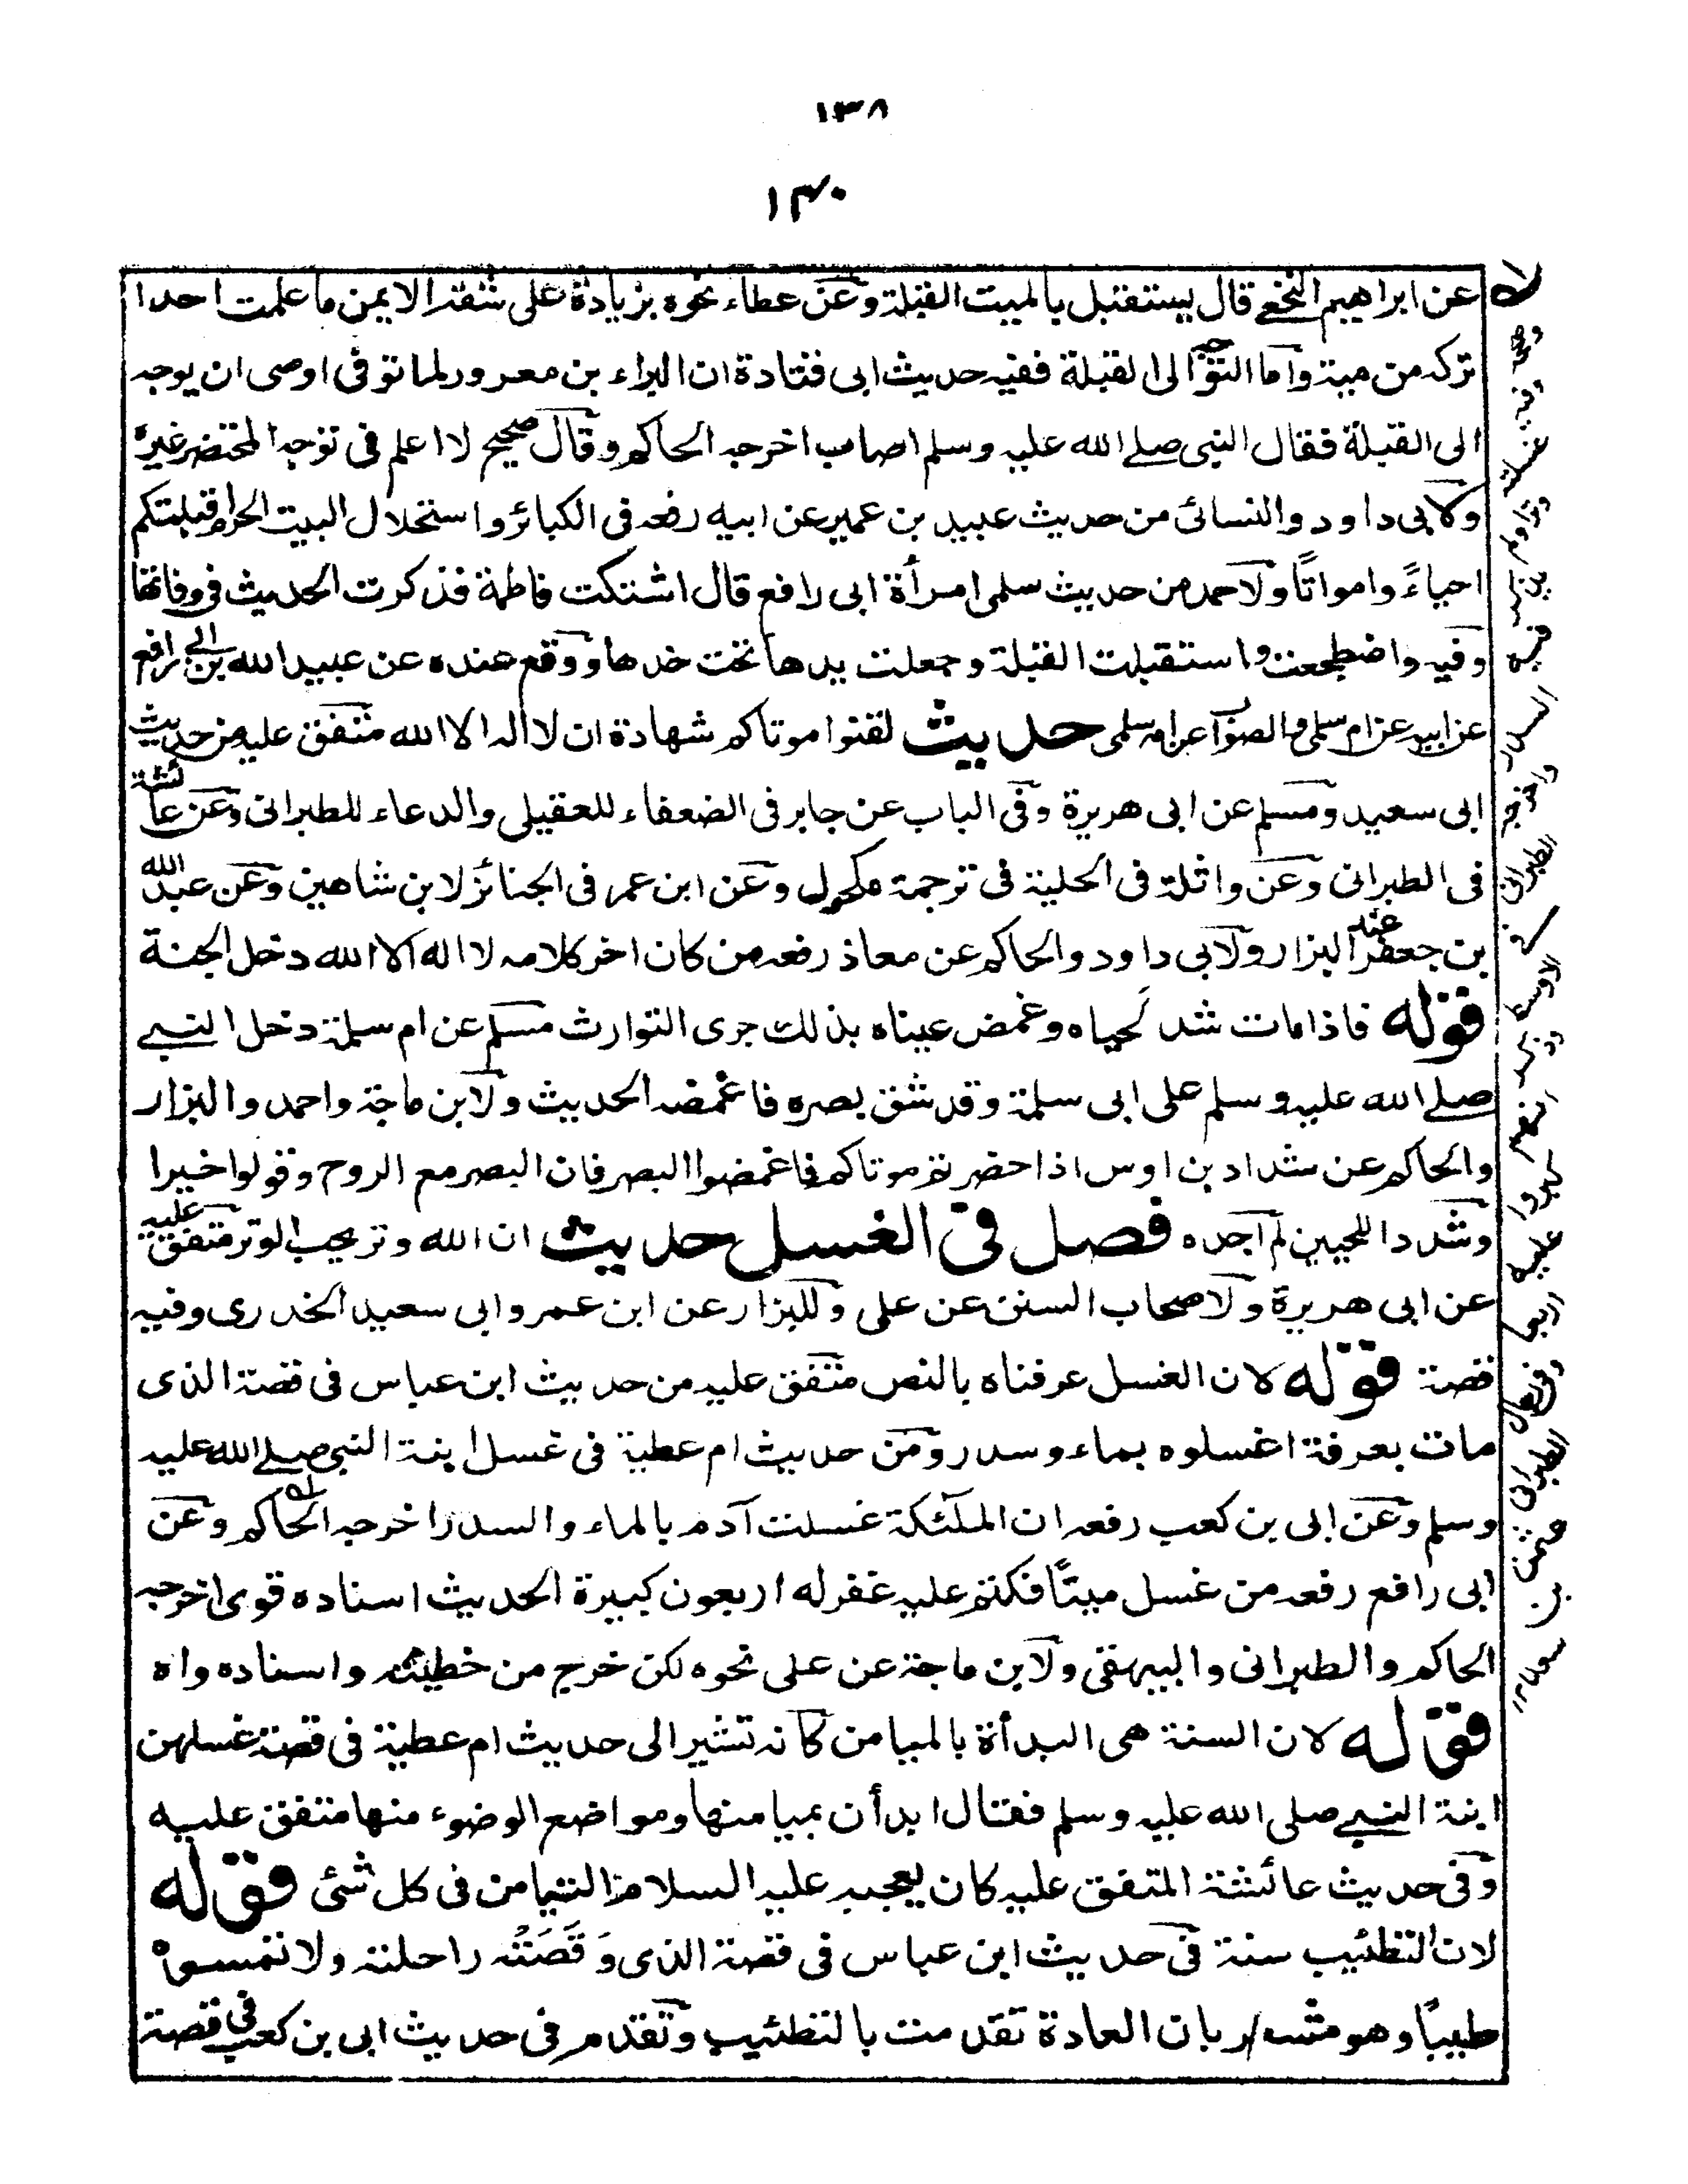 ١٣٨
١٣٠
عن ابراهيم النخعي قال يستقبل بالميت القبلة وعن عطاء نحوه بزيادة على شقه الايمن ما علمت احدا
تركه من ميته واما التوجه الى القبلة ففيه حديث ابى قتادة ان البراء بن معرور لما توفى اوصى ان يوجه
الى القبلة فقال النبى صلے الله عليه وسلم اصاب اخرجه الحاكم وقال صحيح لا اعلم فى توجه المحتضر غيره
ولابى داود والنسائى من حديث عبيد بن عمير عن ابيه رفعه فى الكبائر واستحلال البيت الحرام قبلتكم
احياءً وامواتًا ولاحمد من حديث سلمى امرأة ابى رافع قال اشتكت فاطمة فذكرت الحديث فى وفاتها
وفيه واضطجعت واستقبلت القبلة وجعلت يدها تحت خدها ووقع عنده عن عبيد الله بن ابي رافع
عن ابيه عن ام سلمى والصواب عن امه سلمى حديث لقنوا موتاكم شهادة ان لا اله الا الله متفق عليه من حديث
ابى سعيد ومسلم عن ابى هريرة وفى الباب عن جابر فى الضعفاء للعقيلى والدعاء للطبرانى وعن عائشة
فى الطبرانى وعن واثلة فى الحلية فى ترجمة مكحول وعن ابن عمر فى الجنائز لابن شاهين وعن عبد الله
بن جعفر عند البزار ولابى داود والحاكم عن معاذ رفعه من كان اخر كلامه لا اله الا الله دخل الجنة
قوله فاذا مات شد لحياه وغمض عيناه بذلك جرى التوارث مسلم عن ام سلمة دخل النبے
صلے الله عليه وسلم على ابى سلمة وقد شق بصره فاغمضه الحديث ولابن ماجة واحمد والبزار
والحاكم عن شداد بن اوس اذا حضرتم موتاكم فاغمضوا البصر فان البصر مع الروح وقولوا خيرا
وشد داللحيين لم اجده فصل فى الغسل حديث ان الله وتر يحب الوتر متفق عليه
عن ابى هريرة ولاصحاب السنن عن على وللبزار عن ابن عمر وابى سعيد الخدرى وفيه
قصة قوله لان الغسل عرفناه بالنص متفق عليه من حديث ابن عباس فى قصة الذى
مات بعرفة اغسلوه بماء وسدر ومن حديث ام عطية فى غسل ابنة النبى صلے الله عليه
وسلم وعن ابى بن كعب رفعه ان الملئكة غسلت آدم بالماء والسدر اخرجه الحاكم وعن
ابى رافع رفعه من غسل ميتًا فكتم عليه غفر له اربعون كبيرة الحديث اسناده قوى اخرجه
الحاكم والطبرانى والبيهقى ولابن ماجة عن على نحوه لكن خرج من خطيئته واسناده واه
قوله لان السنة هى البدأة بالميامن كانه تشير الى حديث ام عطية فى قصة غسلهن
ابنة النبے صلى الله عليه وسلم فقال ابدأن بميامنها ومواضع الوضوء منها متفق عليه
وفى حديث عائشة المتفق عليه كان يعجبه عليه السلام التيامن فى كل شئى قوله
لان التطئيب سنة فى حديث ابن عباس فى قصة الذى وَقَصَتْه راحلته ولا تمسوه
طيبًا وهو مشعر بان العادة تقدمت بالتطئيب وتقدم فى حديث ابى بن كعب فى قصة